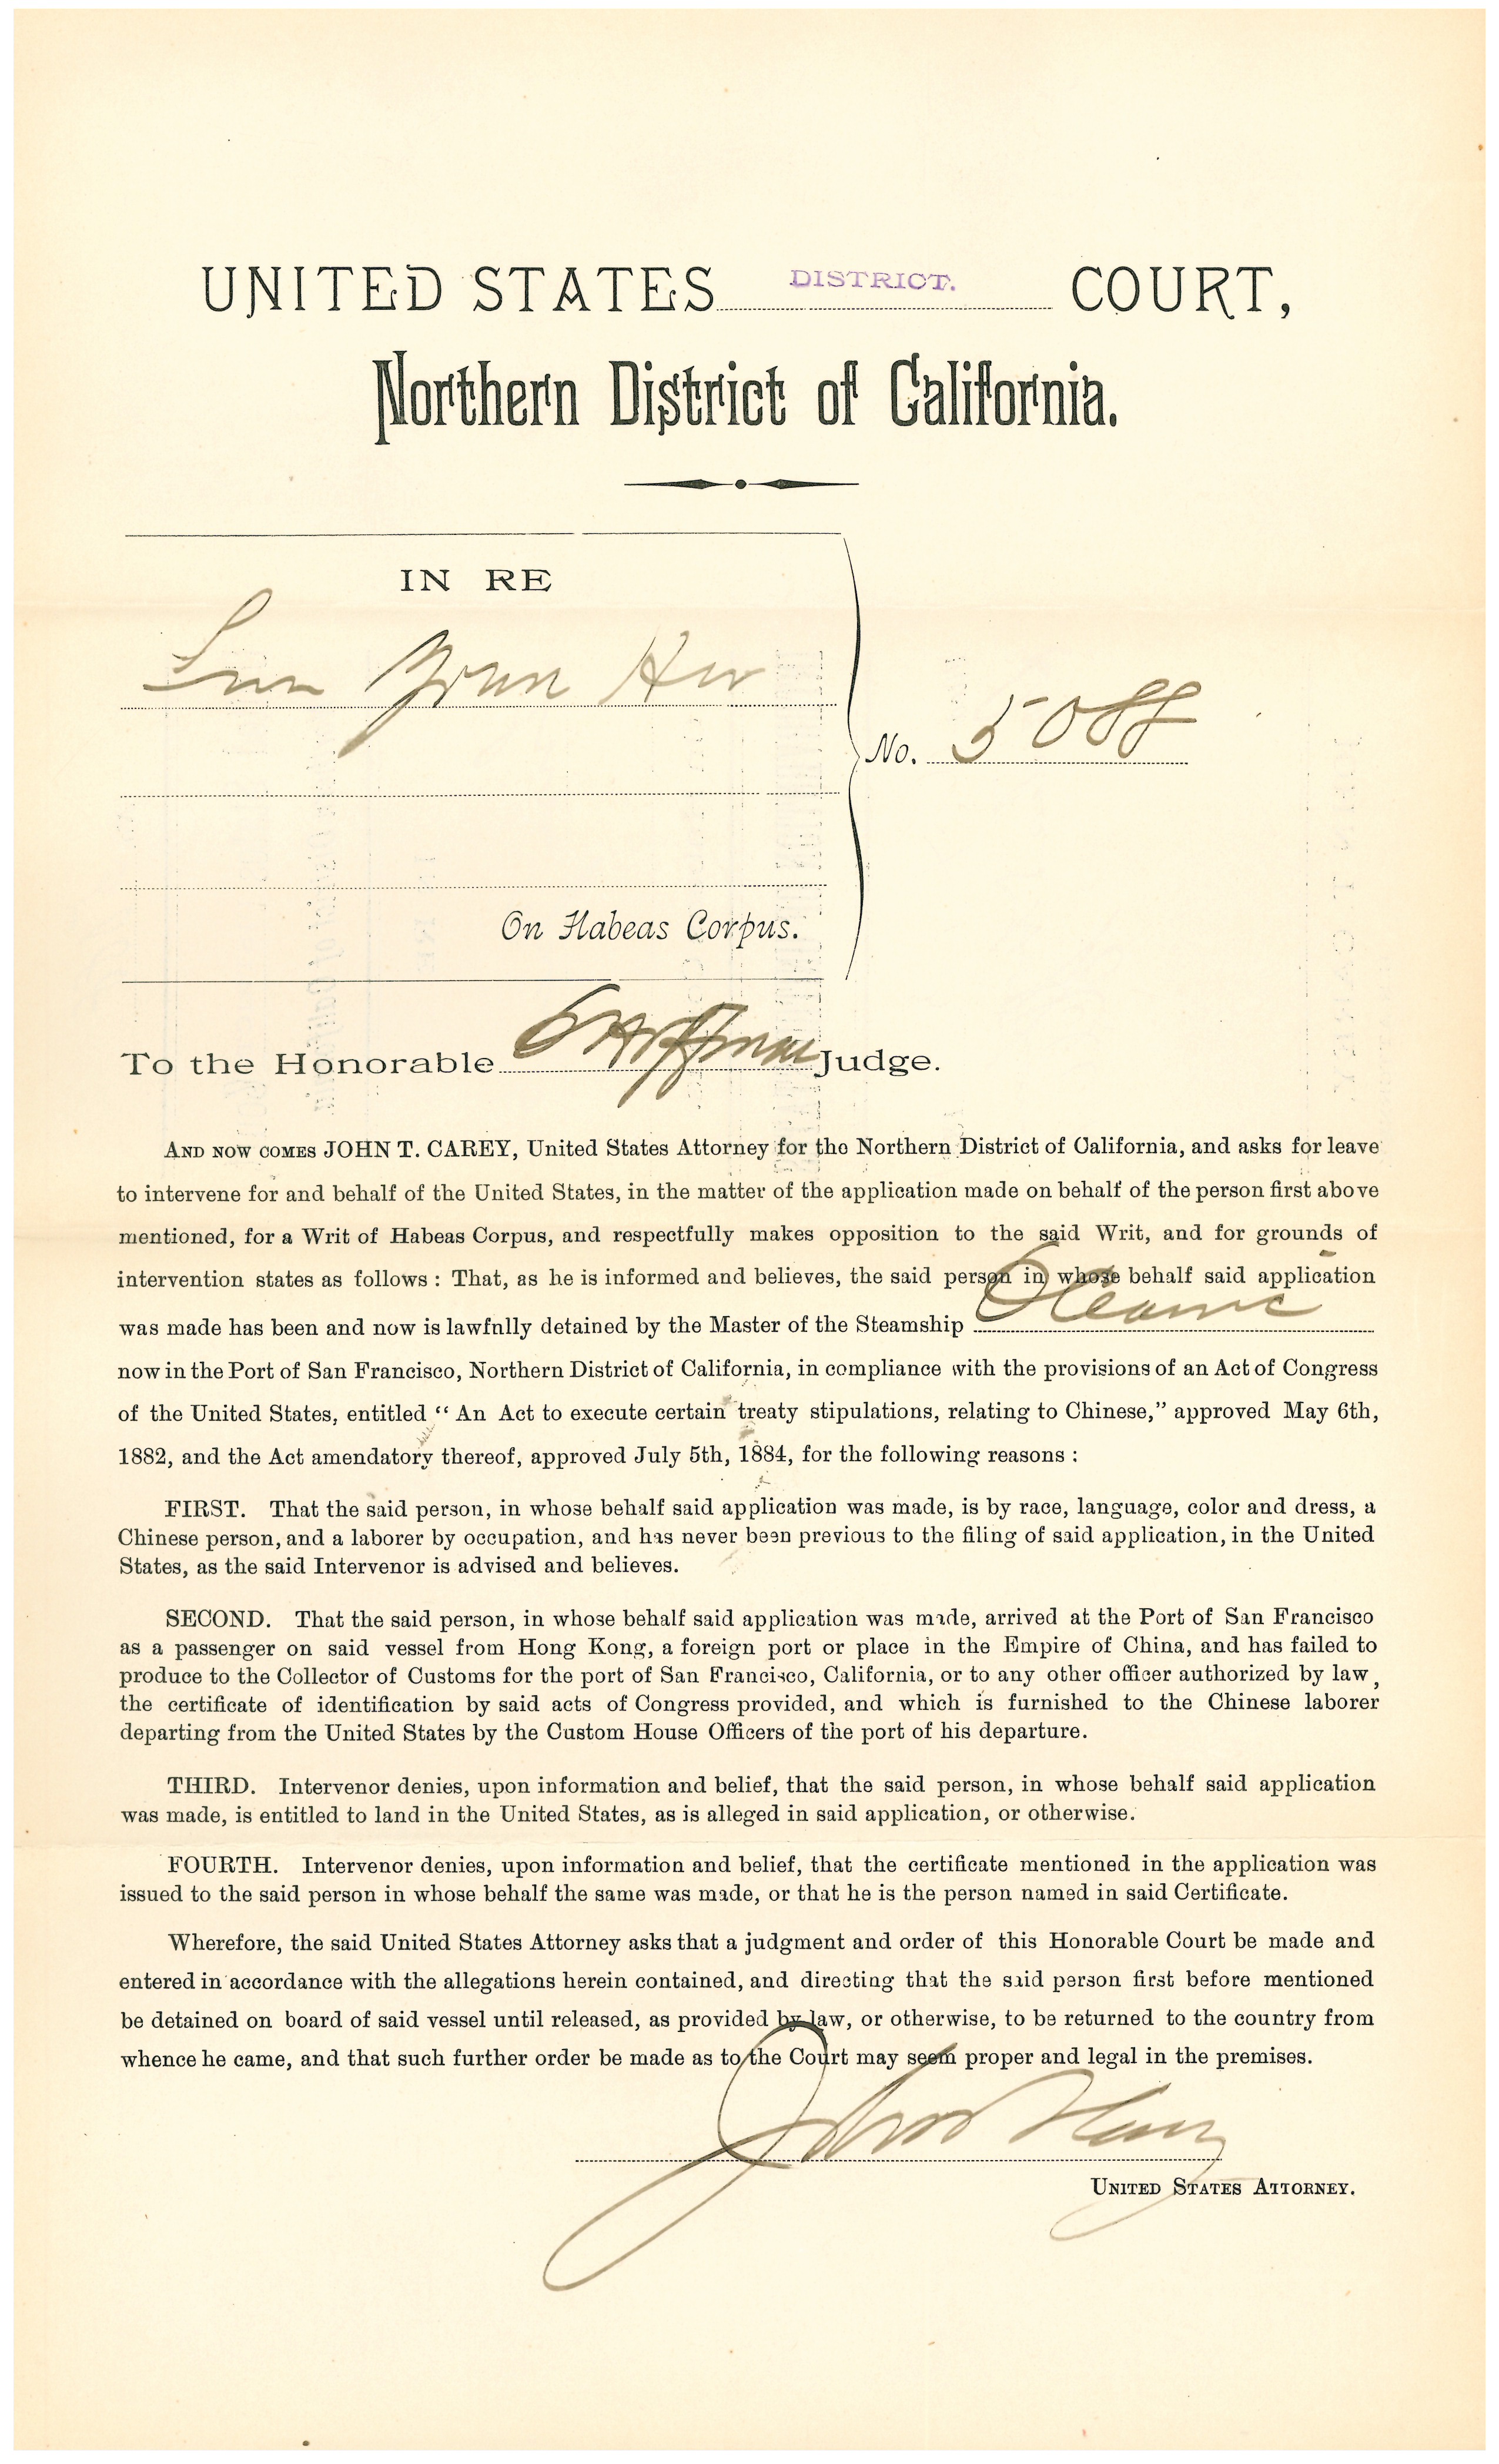 UNITED STATES DISTRICT. COURT,
Northern District of California.
IN RE
No. 5088
On Habeas Corpus.
To the Honorable Hoffman Judge.
AND NOW COMES JOHN T. CAREY, United States Attorney for the Northern District of California, and asks for leave
to intervene for and behalf of the United States, in the matter of the application made on behalf of the person first above
mentioned, for a Writ of Habeas Corpus, and respectfully makes opposition to the said Writ, and for grounds of
intervention states as follows : That, as he is informed and believes, the said person in whose behalf said application
was made has been and now is lawfnlly detained by the Master of the Steamship Oceanic
now in the Port of San Francisco, Northern District of California, in compliance with the provisions of an Act of Congress
of the United States, entitled “ An Act to execute certain treaty stipulations, relating to Chinese,” approved May 6th,
1882, and the Act amendatory thereof, approved July 5th, 1884, for the following reasons :
FIRST. That the said person, in whose behalf said application was made, is by race, language, color and dress, a
Chinese person, and a laborer by occupation, and has never been previous to the filing of said application, in the United
States, as the said Intervenor is advised and believes.
SECOND. That the said person, in whose behalf said application was made, arrived at the Port of San Francisco
as a passenger on said vessel from Hong Kong, a foreign port or place in the Empire of China, and has failed to
produce to the Collector of Customs for the port of San Francisco, California, or to any other officer authorized by law,
the certificate of identification by said acts of Congress provided, and which is furnished to the Chinese laborer
departing from the United States by the Custom House Officers of the port of his departure.
THIRD. Intervenor denies, upon information and belief, that the said person, in whose behalf said application
was made, is entitled to land in the United States, as is alleged in said application, or otherwise.
FOURTH. Intervenor denies, upon information and belief, that the certificate mentioned in the application was
issued to the said person in whose behalf the same was made, or that he is the person named in said Certificate.
Wherefore, the said United States Attorney asks that a judgment and order of this Honorable Court be made and
entered in accordance with the allegations herein contained, and directing that the said person first before mentioned
be detained on board of said vessel until released, as provided by law, or otherwise, to be returned to the country from
whence he came, and that such further order be made as to the Court may seem proper and legal in the premises.
John T Carey
UNITED STATES ATTORNEY.